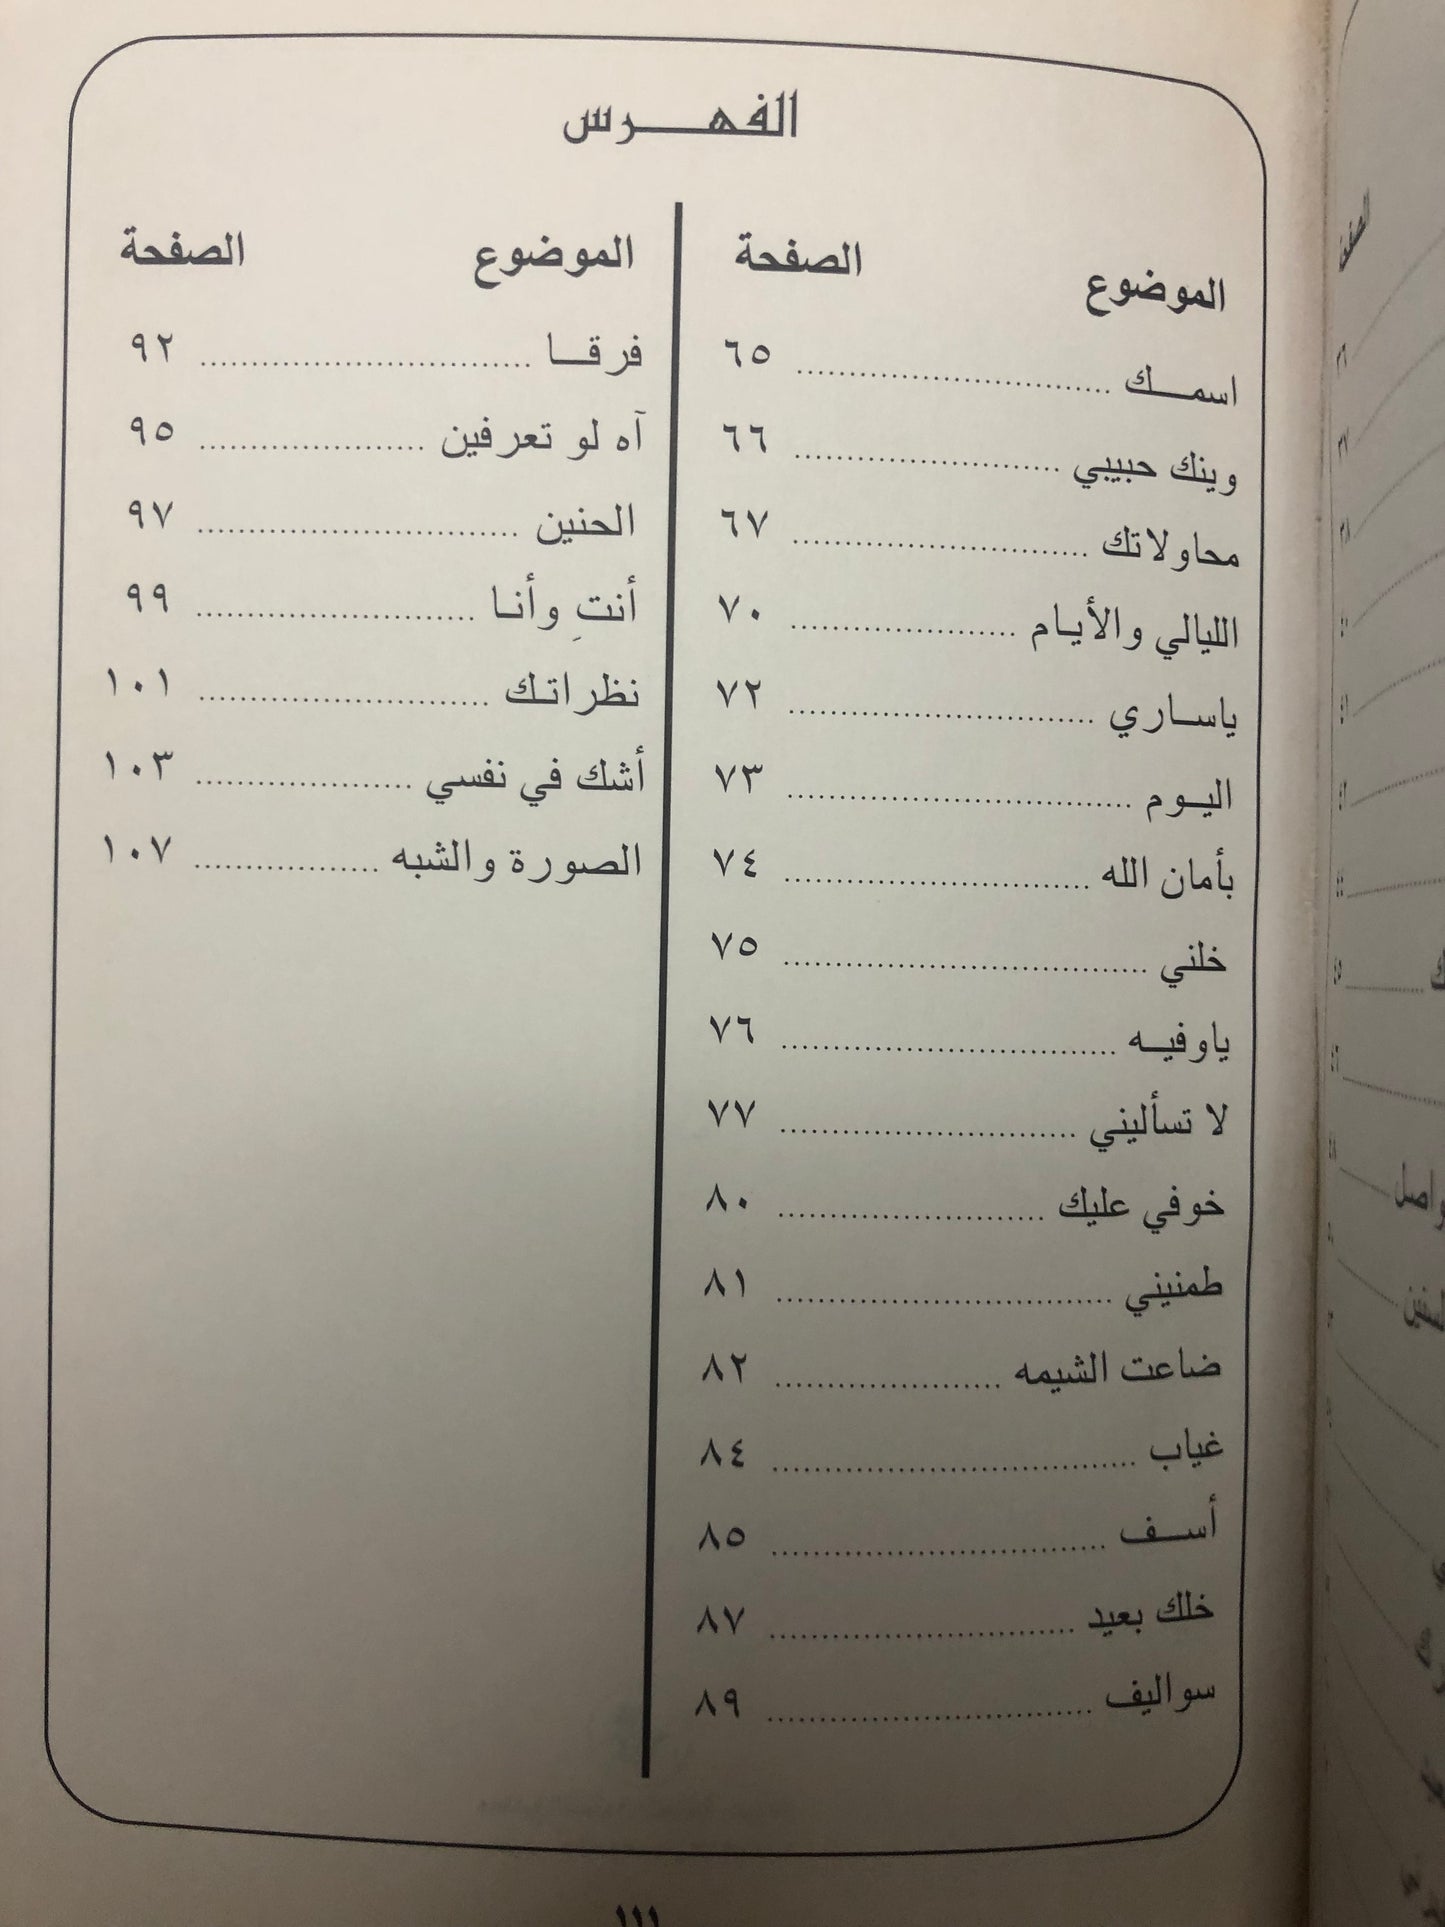 الفهرس
الموضوع الصفحة
اسمك ٦٥
وينك حبيبي ٦٦
محاولاتك ٦٧
الليالي والأيام ٧٠
ياساري ٧٢
اليوم ٧٣
بأمان الله ٧٤
خلني ٧٥
ياوفيه ٧٦
لا تسأليني ٧٧
خوفي عليك ٨٠
طمنيني ٨١
ضاعت الشيمه ٨٢
غياب ٨٤
أسف ٨٥
خلك بعيد ٨٧
سواليف ٨٩
الموضوع الصفحة
فرقا ٩٢
آه لو تعرفين ٩٥
الحنين ٩٧
أنتِ وأنا ٩٩
نظراتك ١٠١
أشك في نفسي ١٠٣
الصورة والشبه ١٠٧
١١١